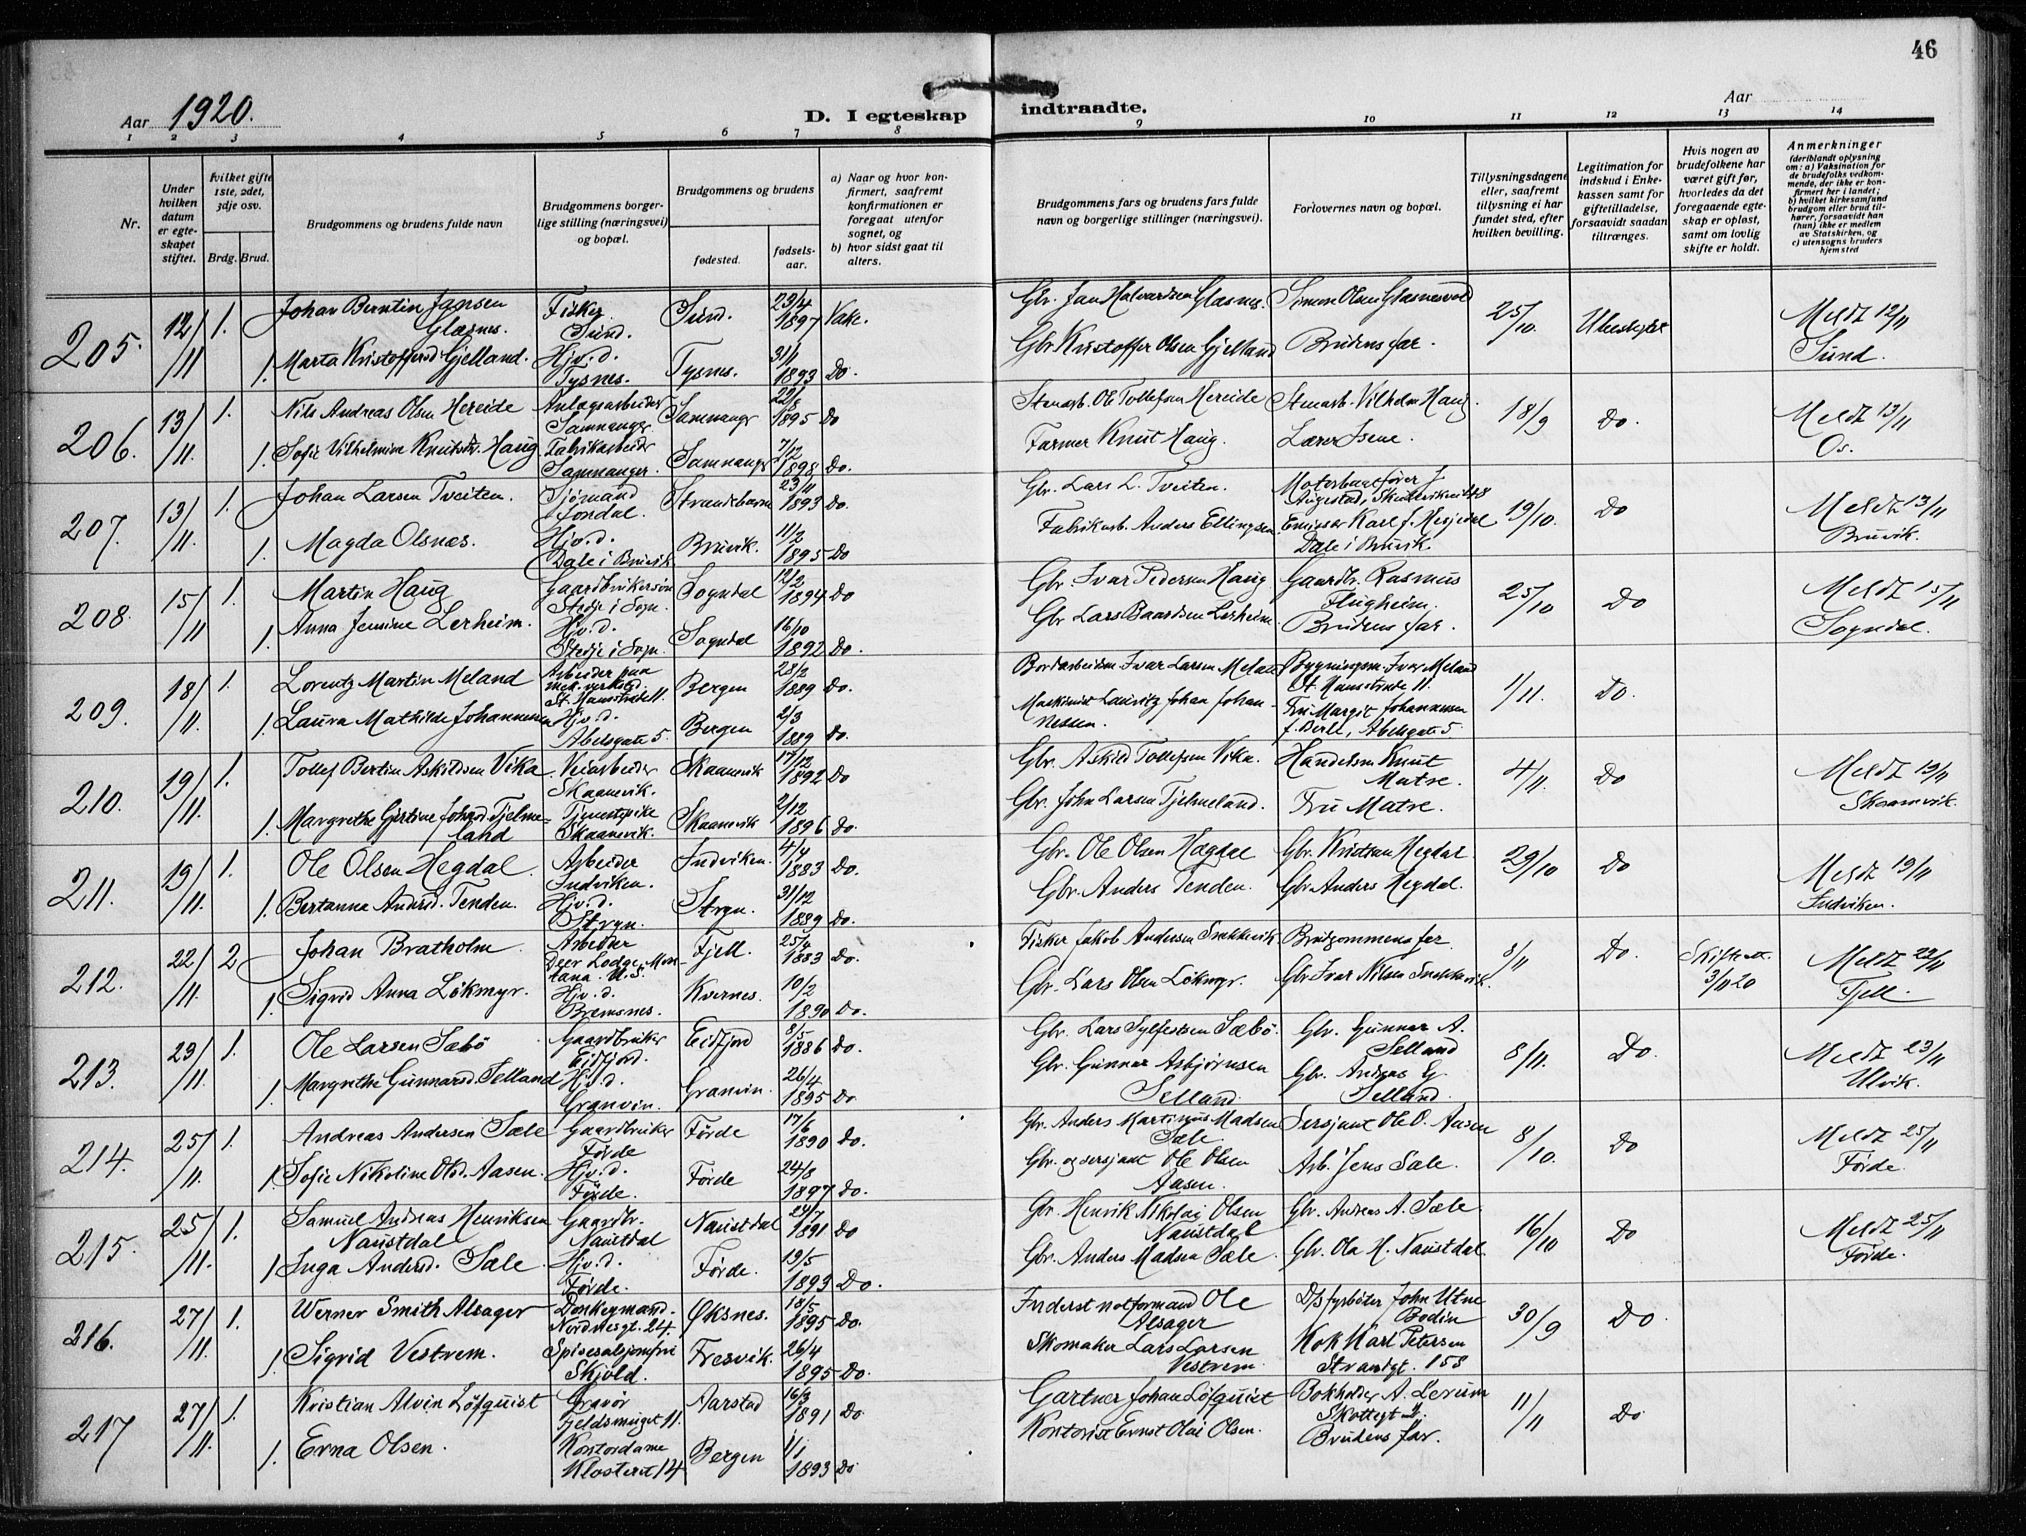 46
Aar 1920.
D. I egteskap indtraadte.
Aar
1 2 3 4 5 6 7 8 9 10 11 12 13 14
Nr.
Under hvilken datum er egteskapet stiftet.
Hvilket gifte 1ste, 2det, 3dje osv.
Brdg. Brud.
Brudgommens og brudens fulde navn
Brudgommens borgerlige stilling (næringsvei) og bopæl.
Brudgommens og brudens
fødested.
fødselsaar.
a) Naar og hvor konfirmert, saafremt konfirmationen er foregaat utenfor sognet, og
b) hvor sidst gaat til alters.
Brudgommens fars og brudens fars fulde navn og borgerlige stillinger (næringsvei).
Forlovernes navn og bopæl.
Tillysningsdagene eller, saafremt tillysning ei har fundet sted, efter hvilken bevilling.
Legitimation for indskud i Enkekassen samt for giftetilladelse, forsaavidt saadan tiltrænges.
Hvis nogen av brudefolkene har været gift før, hvorledes da det foregaaende egteskap er opløst, samt om lovlig skifte er holdt.
Anmerkninger
(deriblandt oplysning om: a) Vaksination for de brudefolks vedkommende, der ikke er konfirmert her i landet; b) hvilket kirkesamfund brudgom eller brud tilhører, forsaavidt han (hun) ikke er medlem av Statskirken, og c) utensogns bruders hjemsted
205. 12/11 1. Johan Berntin Jansen Glæsnes. Fisker Sund. Sund. 23/4 1897 Vake. Gbr. Jan Halvardsen Glæsnes. Simon Olsen Glæsnesvold 25/10. Ubeskyttet Meldt 12/11 Sund.
1. Marta Kristoffersd Gjelland. Hjv.d. Tysnes. Tysnes. 31/1 1893 Do. Gbr. Kristoffer Olsen Gjelland Brudens far.
206. 13/11. 1. Nils Andreas Olsen Hereide Anlægsarbeider Samnanger. Samnanger 1895 Do Stenarb. Ole Tollefsen Hereide Stenarb. Vilhelm Haug 18/9 Do. Meldt 13/11 Os.
1. Sofie Vilhelmine Knutsdr. Haug Fabrikarbeider Samnanger. Samnanger 7/12 1898 Do. Farmer Knut Haug. Lærer Isene.
207. 13/11. 1. Johan Larsen Tveiten. Sjømand Jondal. Strandebarm 23/11 1893 Do. Gbr. Lars L. Tveiten. Motorbaatfører J Augestad, 19/10. Do Meldt 13/11 Bruvik.
1. Magda Olsnæs. Hjv.d. Dale i Bruvik Bruvik. 11/2 1895 Do Fabrikarb. Anders Ellingsen Emissær Karl J. Mesjedal Dale i Bruvik
208. 15/11 1. Martin Haug Gaardbrukersøn Stedje i Sogn. Sogndal 12/2 1894 Do Gbr. Ivar Pedersen Haug Gaardbr. Rasmus Flugheim. 25/10 Do Meldt 15/11 Sogndal.
1. Anna Jensine Lerheim. Hjv.d. Stedje i Sogn. Sogndal 16/10 1892 Do. Gbr Lars Baardsen Lerheim Brudens far.
209. 18/11. 1. Lorentz Martin Meland Arbeider paa mek. verksted. St. Hansstræde 11. Bergen 28/2 1889 Do. Bordarbeider Ivar Larsen Meland Bygningsm. Ivar Meland St. Hansstræde 11. 1/11. Do.
1. Laura Mathilde Johannessen Hjv.d. Abelsgate 5. Bergen 2/3 1889 Do. Maskinist Lauritz Johan Johannessen. Fru Margit Johannessen f. Berle, Abelsgate 5.
210. 19/11. 1. Tollef Bertin Askildsen Vika Veiarbeider Skaanevik. Skaanevik 17/12 1892 Do Gbr. Askild Tollefsen Vika. Handelsm Knut Matre. 4/11. Do Meldt 19/11 Skaanevik.
1. Margrethe Gjertine Johnsd Tjelmeland Tjenestepike Skaanevik. Skaanevik 2/12 1896 Do. Gbr. John Larsen Tjelmeland. Fru Matre.
211. 19/11. 1. Ole Olsen Hegdal. Arbeider Indviken. Indviken. 4/4 1883 Do. Gbr. Ole Olsen Hegdal Gbr. Kristian Hegdal 29/10 Do Meldt 19/11 Indviken.
1. Bertanna Andersd. Tenden. Hjv.d. Stryn. Stryn. 31/12 1889 Do. Gbr. Anders Tenden. Gbr Anders Hegdal.
212. 22/11. 2 Johan Bratholm Arbeider Deer Lodge, Montana. U.S. Fjell. 25/4 1883 Do. Fisker Jakob Andersen Snekkevik. Brudgommens far 3/11 Do. Skifteatt. 3/11 20 Meldt 22/11 Fjell.
1. Sigrid Anna Lökmyr. Hjv.d. Bremsnes. Kvernes. 10/2 1890 Do. Gbr. Lars Olsen Lökmyr. Gbr Ivar Nilsen Snekkevik.
213. 23/11. 1. Ole Larsen Sæbö Gaardbruker Eidfjord. Eidfjord 8/5 1886 Do. Gbr. Lars Sylfestsen Sæbö. Gbr. Gunnar A. Selland 8/11. Do. Meldt 23/11 Ulvik.
1. Margrethe Gunnarsd. Selland Hjv.d. Granvin. Granvin. 26/4 1895 Do Gbr. Gunnar Asbjørnsen Selland. Gbr. Andreas G Selland.
214. 25/11. 1. Andreas Andersen Sæle Gaardbruker Førde Førde 17/6 1890 Do. Gbr. Anders Martinus Madsen Sæle Sersjant Ole O. Aasen 8/10. Do Meldt 25/11 Førde.
1. Sofie Nikoline Olsd. Aasen. Hjv.d. Førde. Førde 24/8 1897 Do. Gbr. og sersjant Ole Olsen Aasen. Arb. Jens Sæle.
215. 25/11. 1. Samuel Andreas Henriksen Naustdal Gaardbr. Naustdal Naustdal 24/7 1891 Do Gbr. Henrik Nikolai Olsen Naustdal Gbr. Andreas A. Sæle 16/10 Do Meldt 25/11 Førde.
1 Inga Andersd. Sæle. Hjv.d. Førde. Førde. 19/5 1893 Do. Gbr. Anders Madsen Sæle. Gbr. Ola H. Naustdal
216. 27/11. 1. Werner Smith Alsager Donkeymand. Nordnesgt. 24. Øksnes. 18/5 1895 Do. Inderst notformand Ole Alsager D/s fyrbøter John Utne Bodin 30/9 Do.
1. Sigrid Vestrem. Spisesalsjomfru Skjold. Fresvik. 26/4 1895 Do. Skomaker Lars Larsen Vestrem. Kok Karl Petersen Strandgt. 158
217 27/11. 1. Kristian Alvin Löfquist Gravør Fjeldsmuget 11. Aarstad 16/3 1891 Do. Gartner Johan Löfquist Bokholder A. Lerum Skottegt 11/11 Do.
1. Erna Olsen. Kontordame Klosteret 14 Bergen 1/1 1893 Do Kontorist Ernst Olai Olsen. Brudens far.